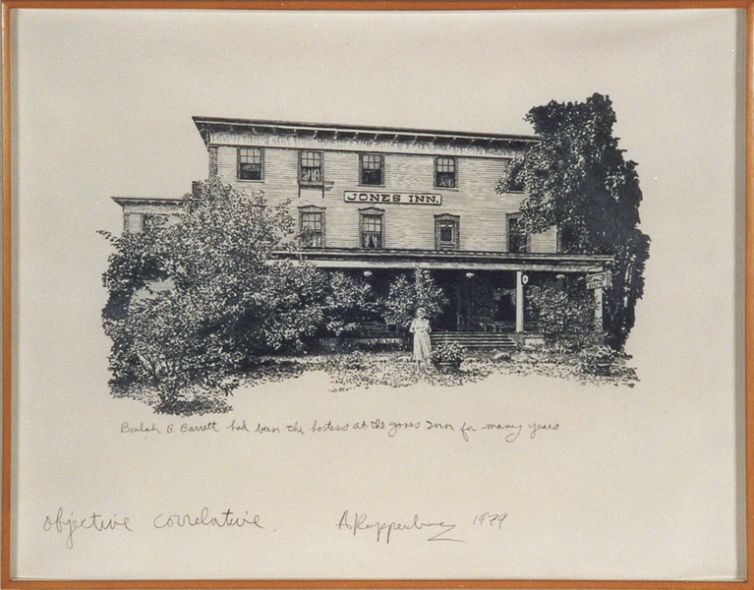 JONES INN.
Beulah B. Barrett had been the hostess at the Jones Inn for many years
objective correlative.
A Ruppersberg 1979